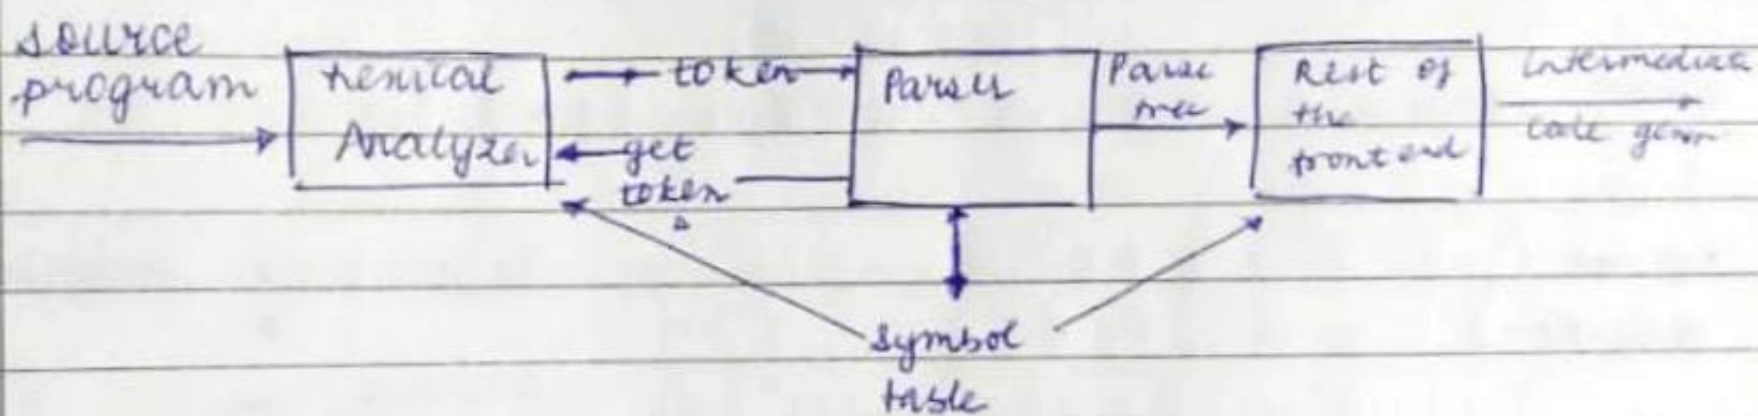 source
program
Lexical
Analyzer
token
get
token
Parser
Parse
tree
Rest of
the
front end
Intermediate
code
symbol
table